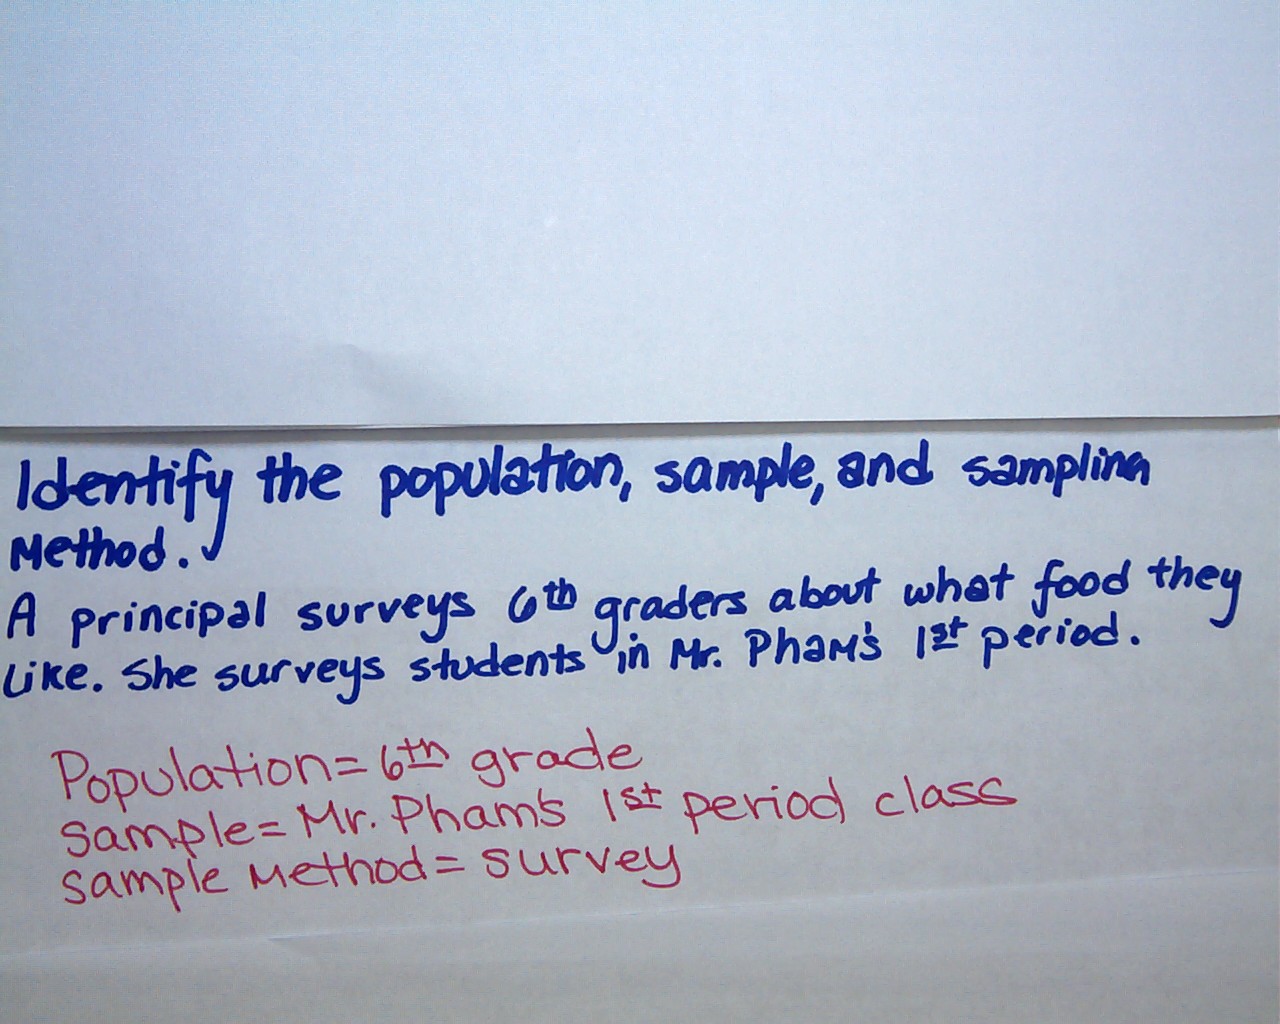 Identify the population, sample, and sampling
Method.
A principal surveys 6th graders about what food they
Like. She surveys students in Mr. Pham's 1st period.
Population = 6th grade
Sample = Mr. Pham's 1st period class
Sample Method = survey